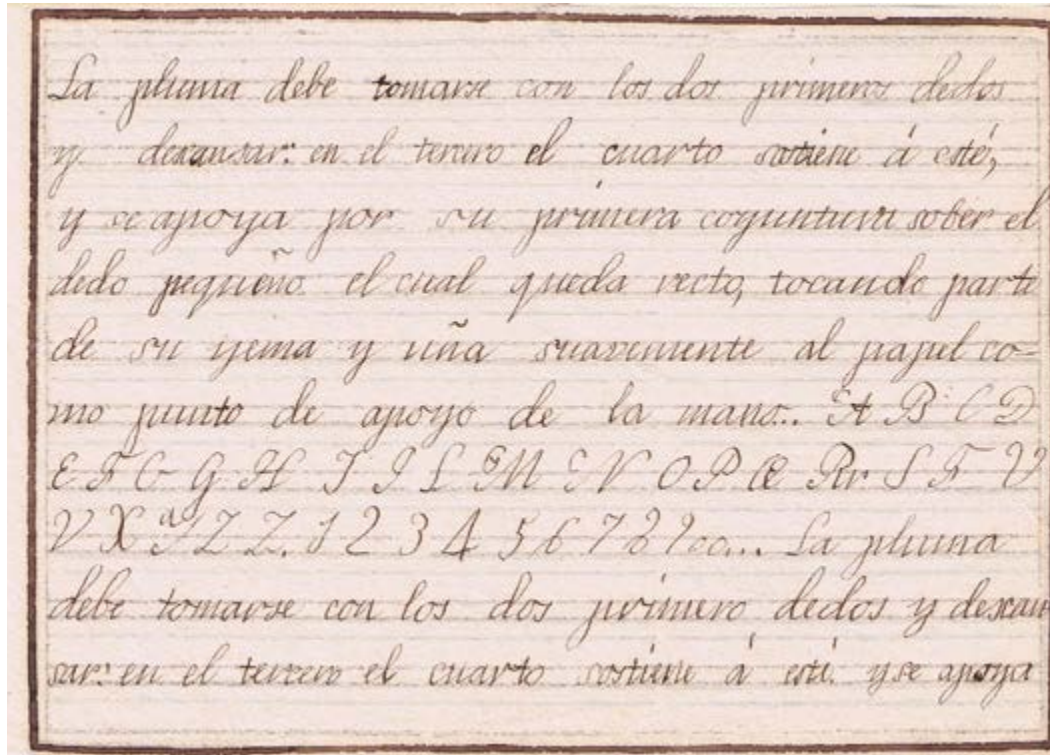 La pluma debe tomarse con los dos primeros dedos
y descansar: en el tercero el cuarto sostiene á esté,
y se apoya por su primera coyuntura sober el
dedo pequeño el cual queda recto, tocando parte
de su yema y uña suavemente al papel co=
mo punto de apoyo de la mano... A B C D
E F G G H I J L M N O P Q Rr S T U
V X Y Z Z. 1 2 3 4 5 6 7 8 9 00... La pluma
debe tomarse con los dos primero dedos y descan
sar: en el tercero el cuarto sostiene á esté. y se apoya